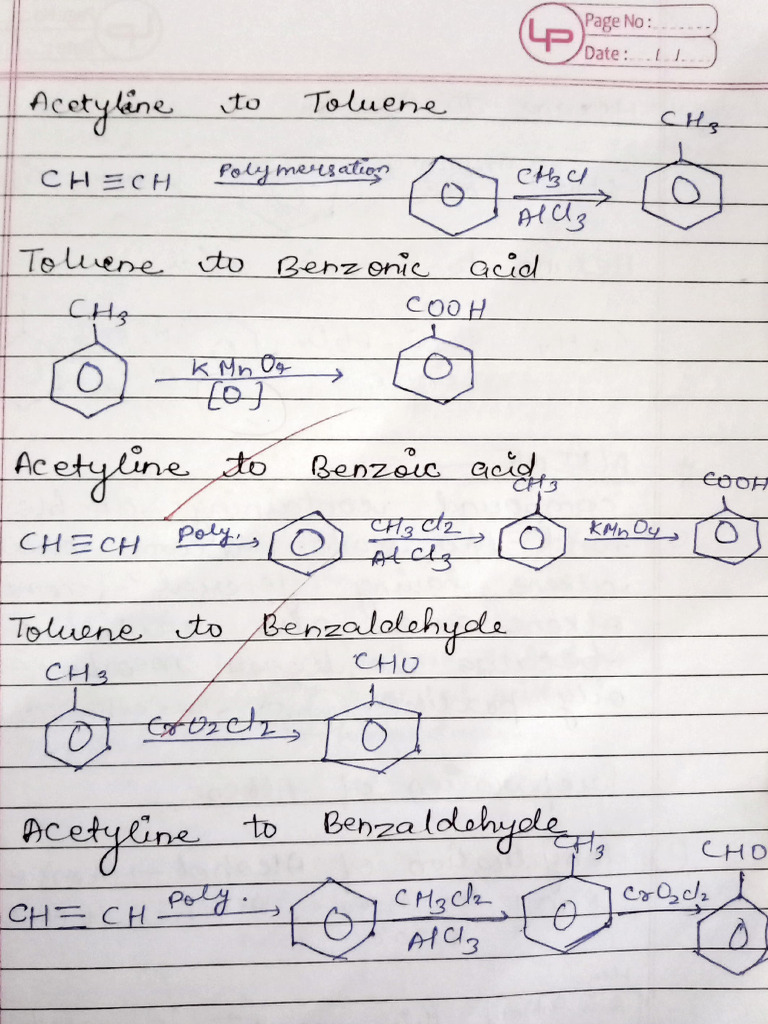 LP Page No :.......
Date :... / /....
Acetyline to Toluene
CH≡CH Polymersation CH3Cl AlCl3 CH3
Toluene to Benzonic acid
CH3 KMnO4 [O] COOH
Acetyline to Benzoic acid
CH≡CH Poly. CH3Cl2 AlCl3 CH3 KMnO4 COOH
Toluene to Benzaldehyde
CH3 CrO2Cl2 CHO
Acetyline to Benzaldehyde
CH≡CH Poly. CH3Cl2 AlCl3 CH3 CrO2Cl2 CHO